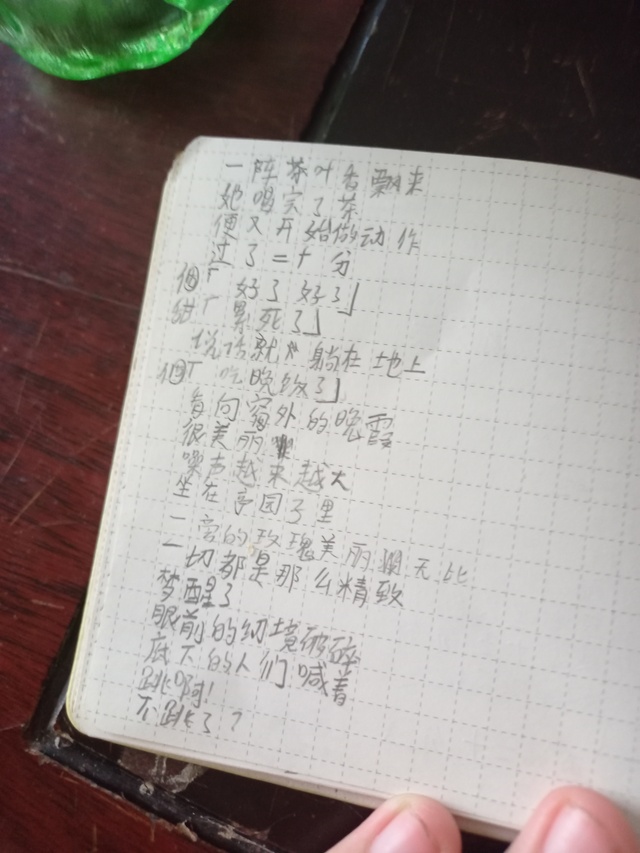 一阵茶叶香飘来
她喝完了茶
便又开始做动作
过了二十分
個「好了好了」
甜「累死了」
说话就躺在地上
個「吃晚饭了」
看向窗外的晚霞
很美丽
噪声越来越大
坐在亭园了里
一旁的玫瑰美丽無比
一切都是那么精致
梦醒了
眼前的幻境破碎
底下的人们喊着
跳啊!
不跳了?